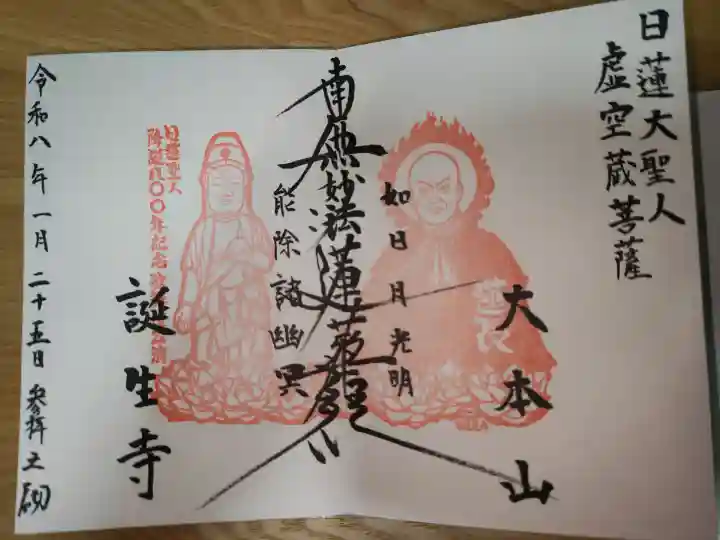 日蓮大聖人
虚空蔵菩薩
大本山
如日月光明
南無妙法蓮華経
能除諸幽冥
誕生寺
日蓮聖人
令和八年一月二十五日 参拝之砌